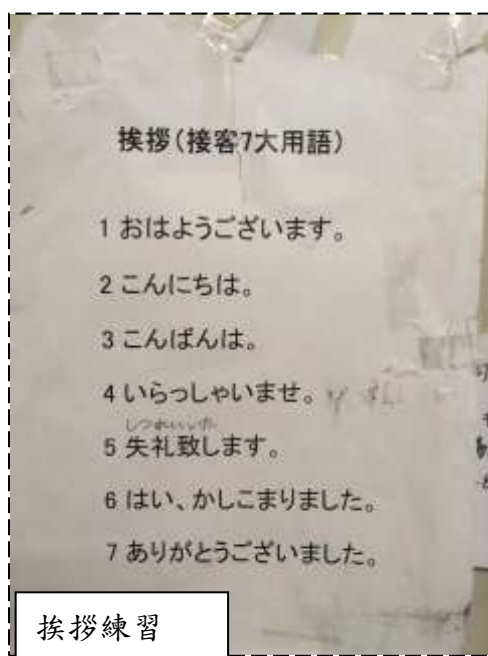 挨拶(接客7大用語)
1 おはようございます。
2 こんにちは。
3 こんばんは。
4 いらっしゃいませ。
しつれいいた
5 失礼致します。
6 はい、かしこまりました。
7 ありがとうございました。
挨拶練習